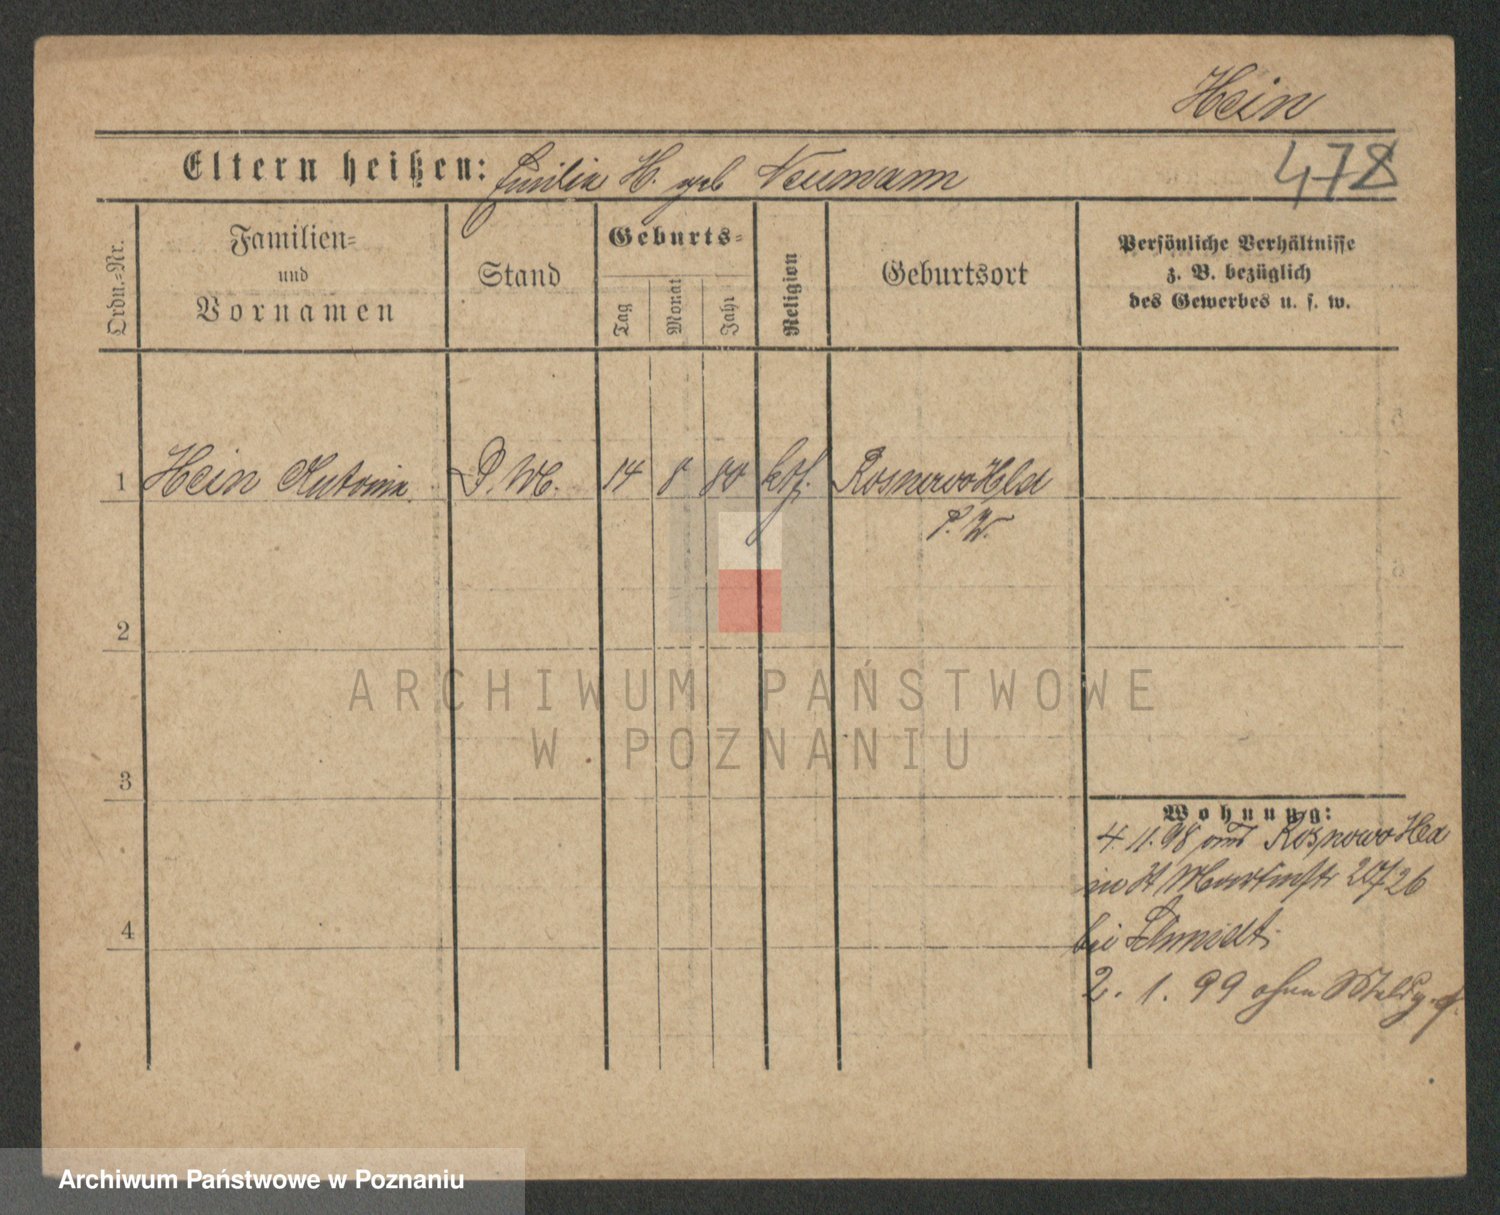 Hein
478
Eltern heißen: Emilia H. geb Neumann
Ordn.-Nr.
Familien-
und
Vornamen
Stand
Geburts-
Tag
Monat
Jahr
Religion
Geburtsort
Persönliche Verhältnisse
z. B. bezüglich
des Gewerbes u. s. w.
1 Hein Antonie P. W. 14 8 80 kth. Rosnowo Hld
P. W.
2
3
4
Wohnung:
4. 11. 98 aus Rosnowo Hld
in St Martinstr 26
bei Schmidt
2. 1. 99 ohne Meldg.
ARCHIWUM PAŃSTWOWE
W POZNANIU
Archiwum Państwowe w Poznaniu